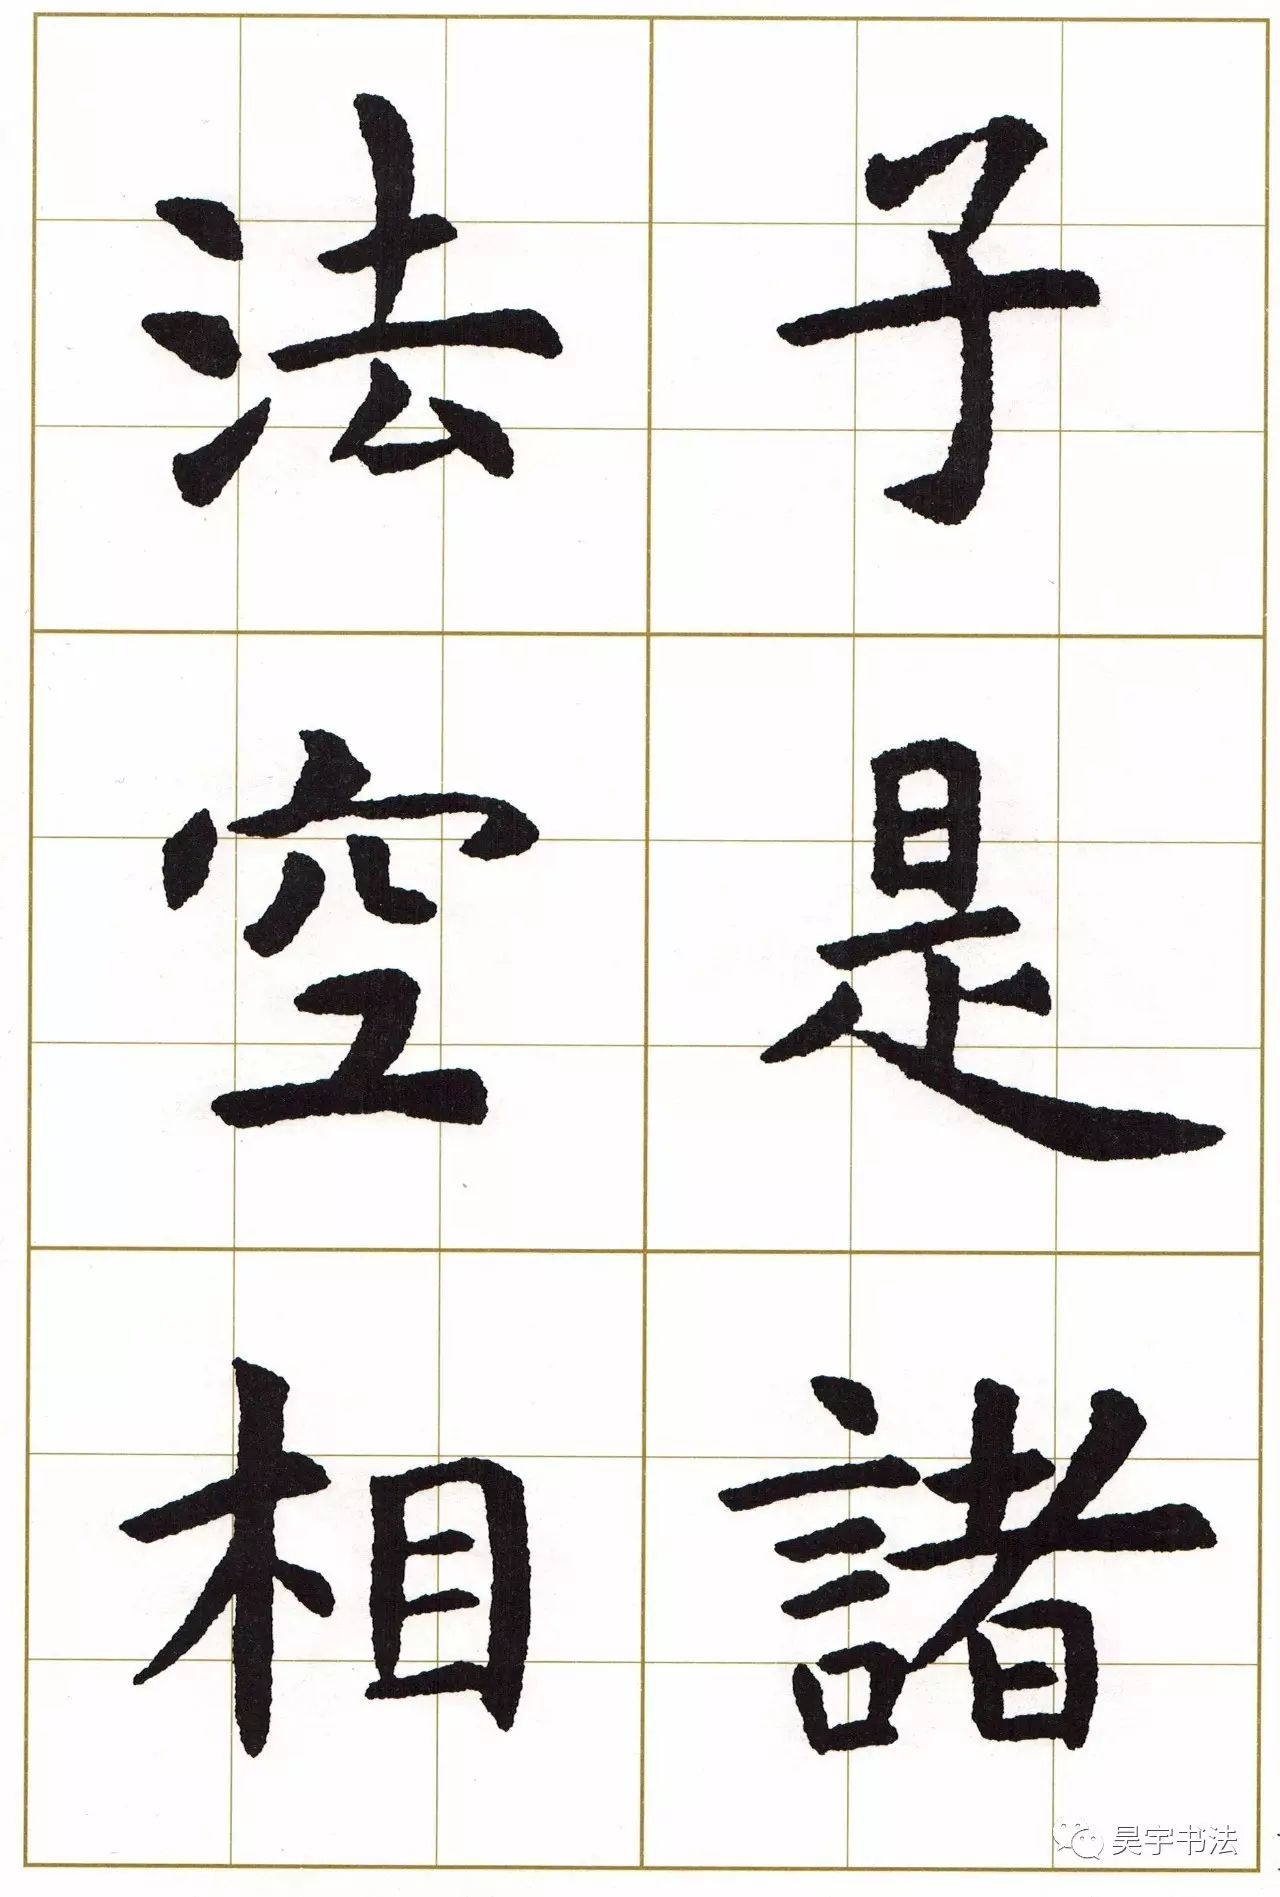 子是諸
法空相
昊宇书法